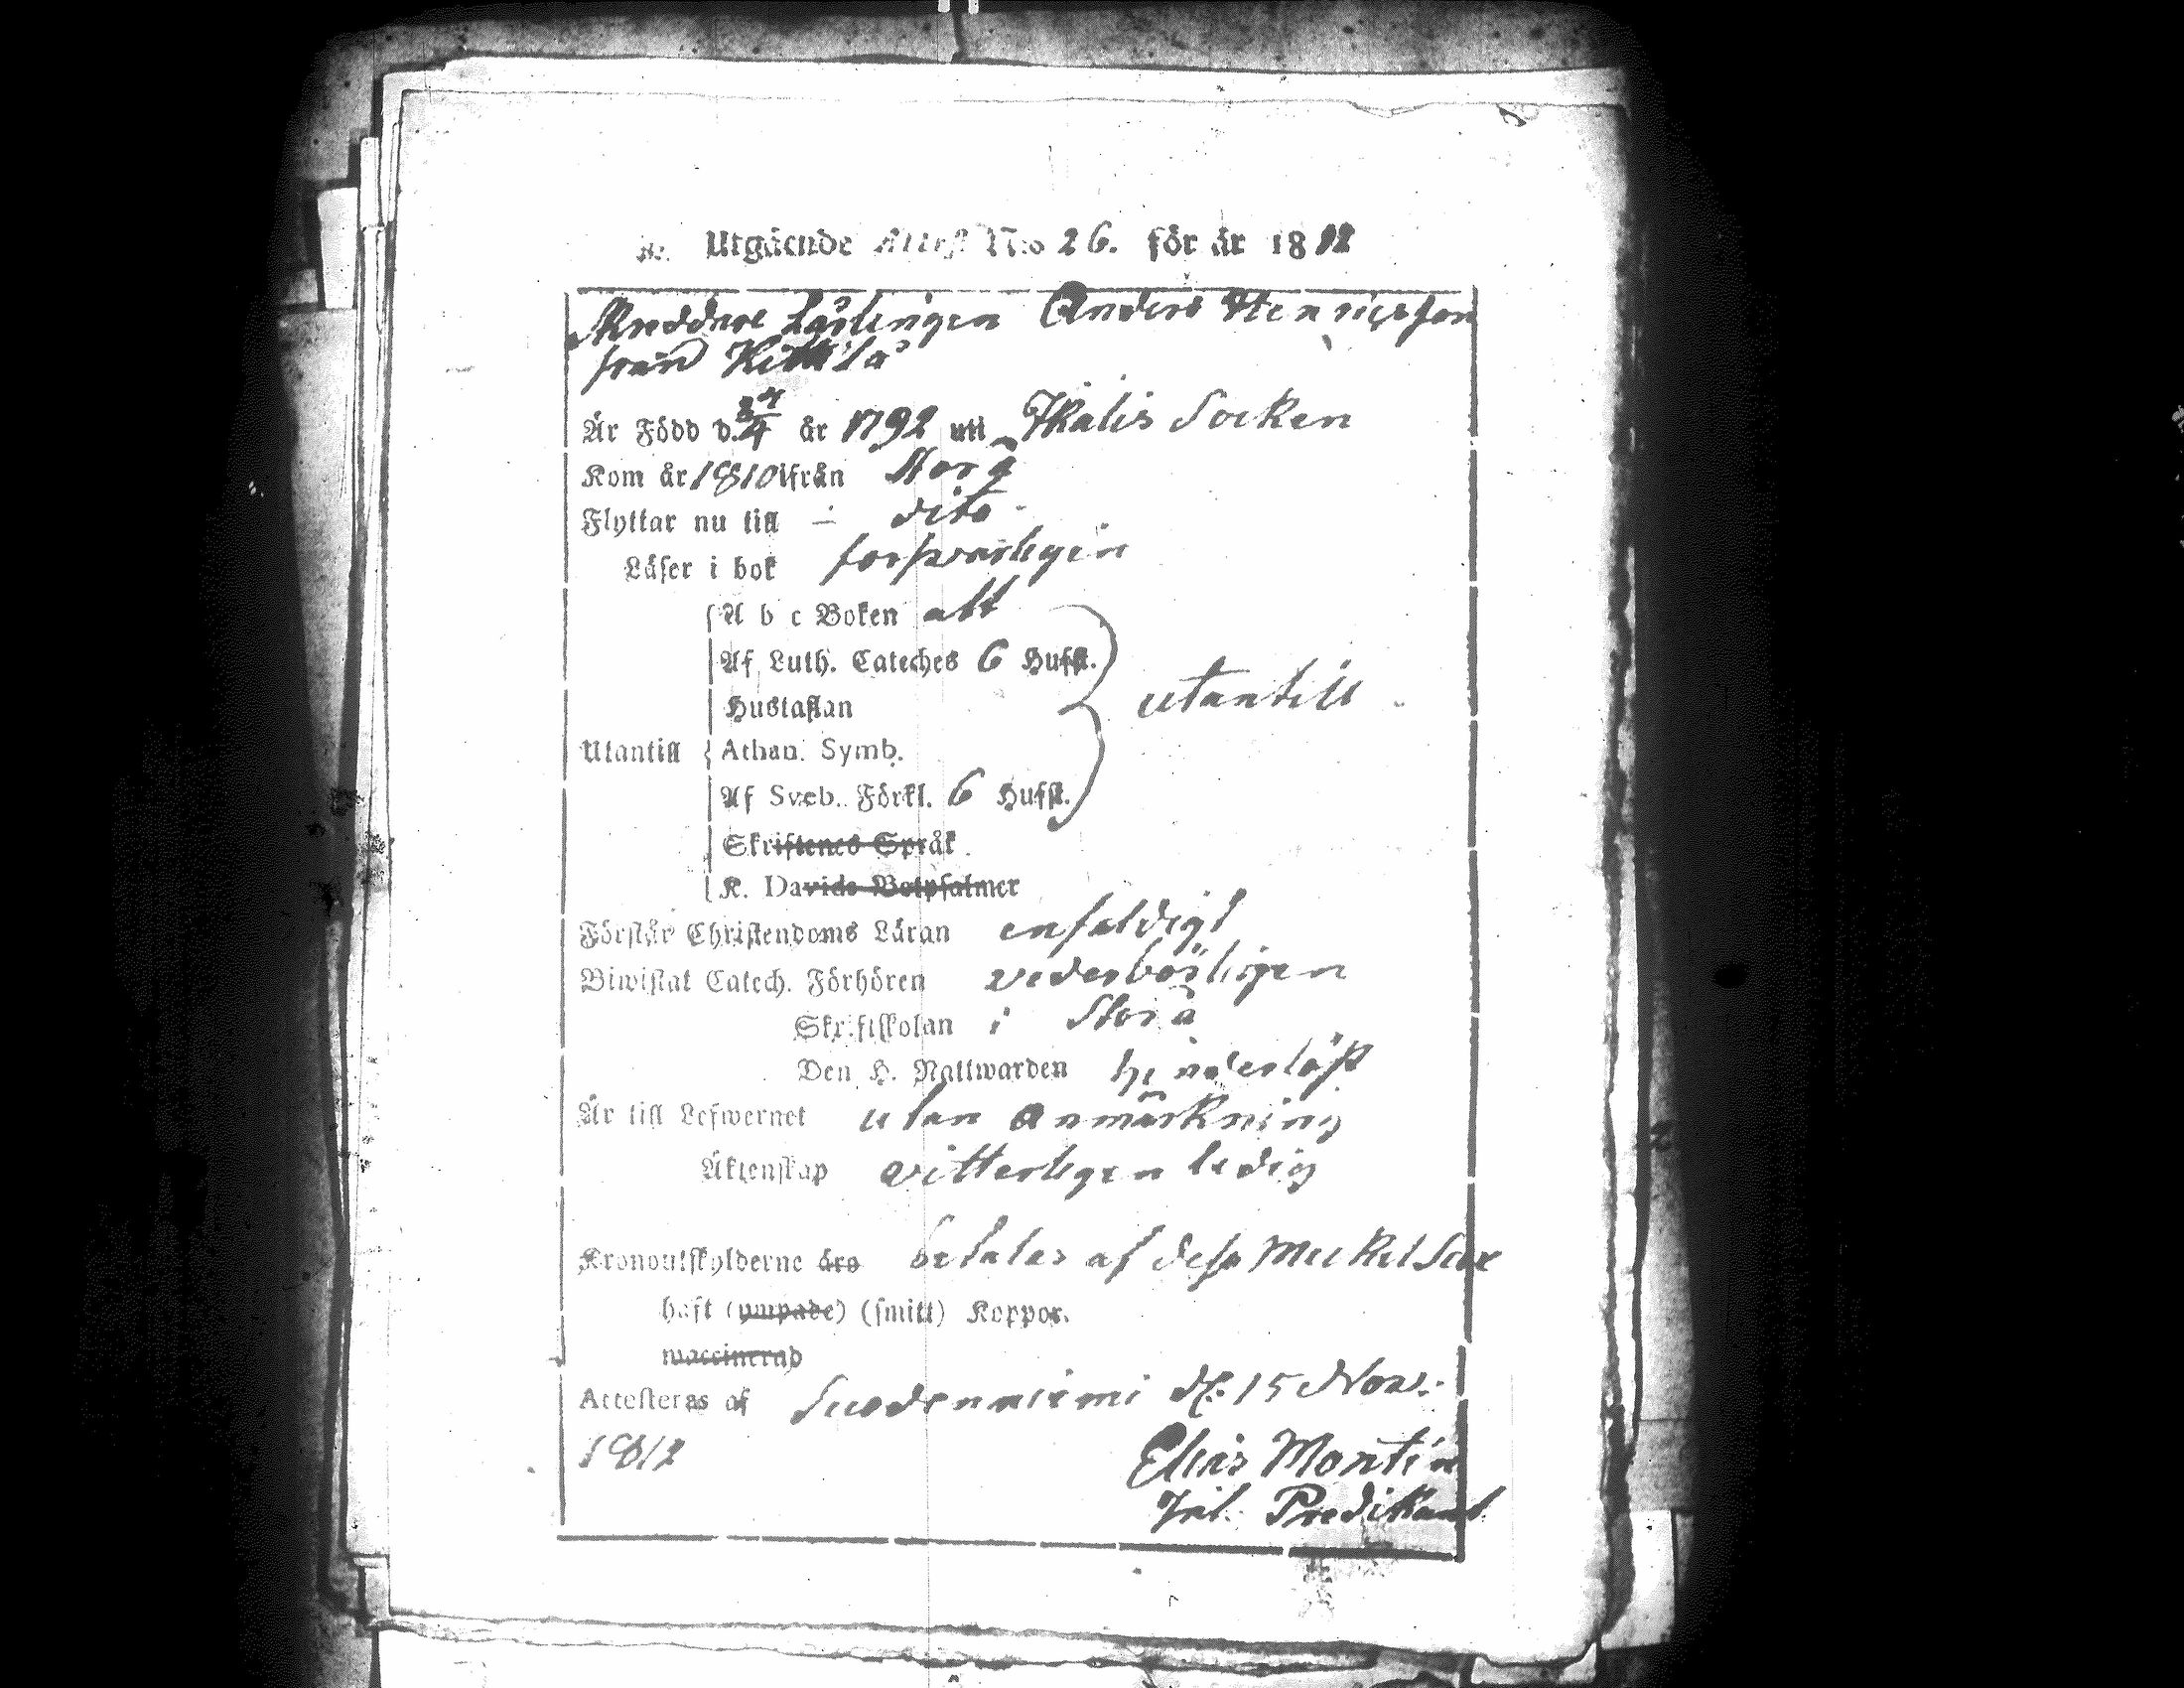 Utgående Attest N:o 26. för år 1812
Skreddare Lärlingen Anders Henricsson
från Kittilä
Är Född d. 24/4 år 1792 uti Ikalis Socken
Kom år 1810 ifrån Storå
Flyttar nu till dito
Läser i bok forsvarligen
A b c Boken alt
Af Luth. Cateches 6 Hufst.
Hustaflan utantill
Utantill Athan. Symb.
Af Sveb. Förkl. 6 Hufst.
Skriftenes Språk
K. Davids Botpsalmer
Förstår Christendoms Läran enfaldigt
Biwistat Catech. Förhören vederbörligen
Skriftskolan i Storå
Den H. Nattwarden hinderlöst
Är till Lefwernet utan anmärkning
Äktenskap vitterligen ledig
Kronoutskylderne äro betalas af dess
haft (ympade) (smitt) Koppor.
waccinerad
Attesteras af Suodenniemi d. 15 Nov.
1812 Elias Montin
Predikant